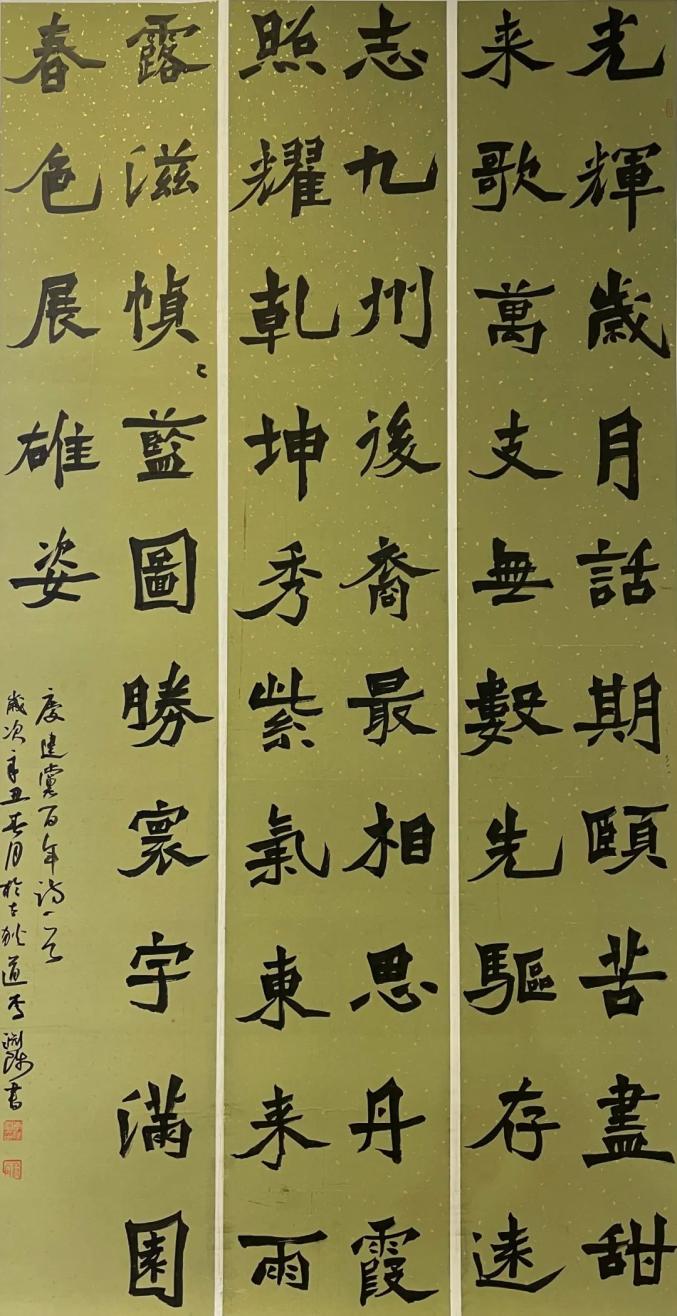 光輝歲月話期頤苦盡甜
来歌萬支無數先驅存遠
志九州後裔最相思丹霞
照耀乾坤秀紫氣東来雨
露滋幀〻藍圖勝寰宇滿園
春色展雄姿
慶建黨百年詩一首
歲次辛丑春月於古狄道李書